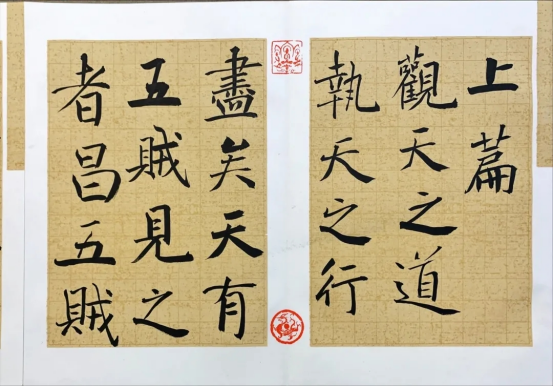 上篇
觀天之道
執天之行
盡矣天有
五賊見之
者昌五賊